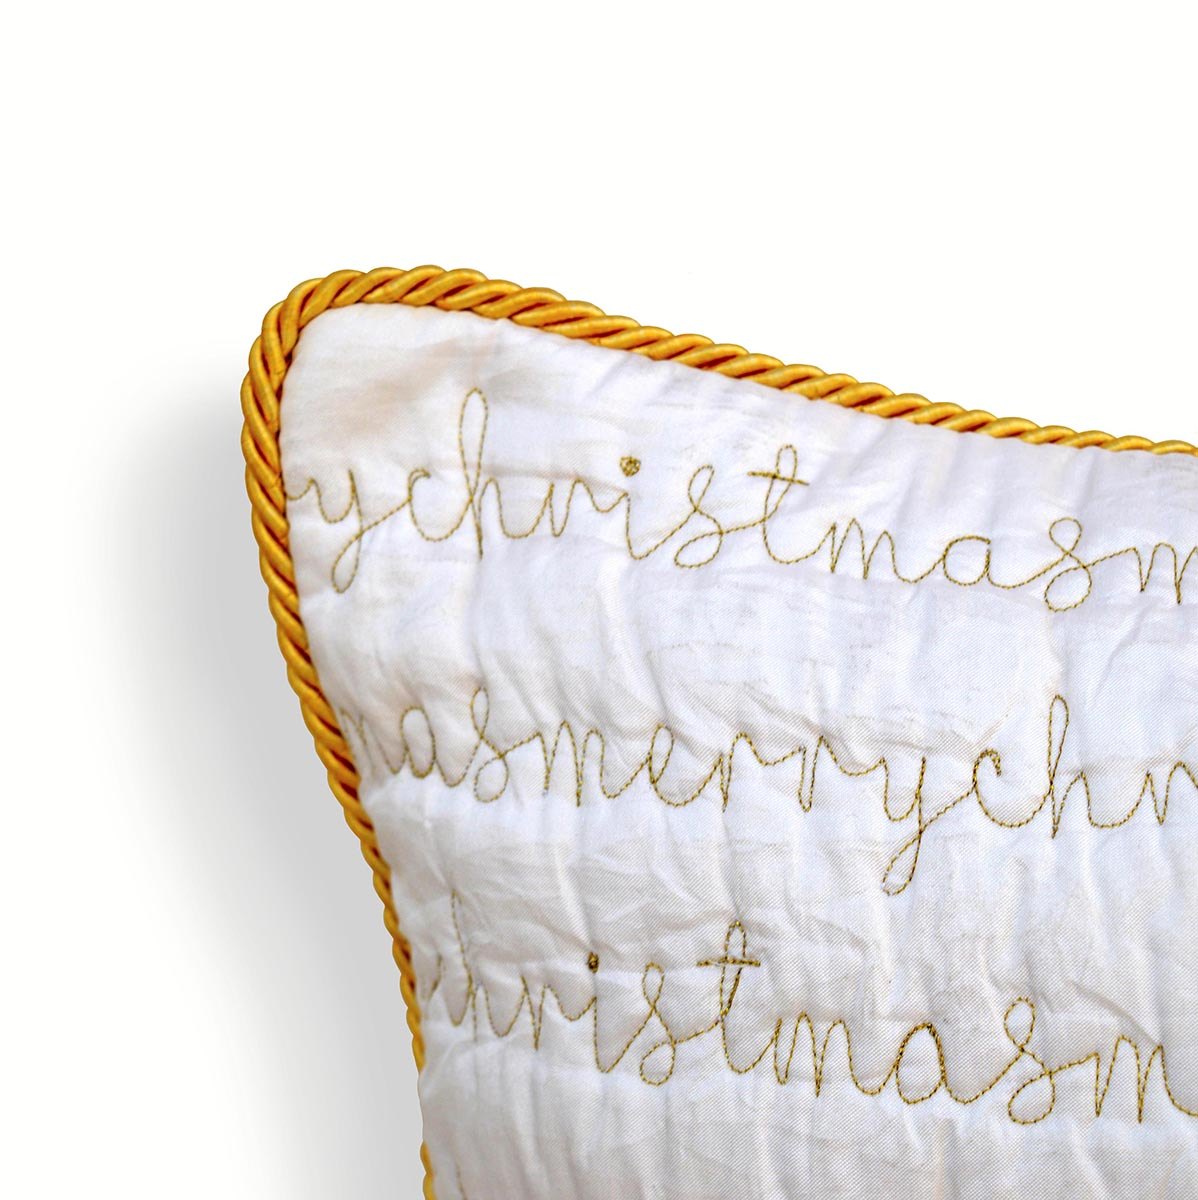 ychristmasm
masmerrych
christmasm